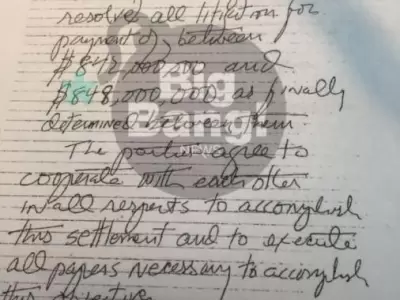 resolves all litigation for
payment of, between
$842,000,000 and
$848,000,000 as finally
determined between them
The parties agree to
cooperate with each other
in all respects to accomplish
this settlement and to execute
all papers necessary to accomplish
this objective
Big
Bang!
NEWS